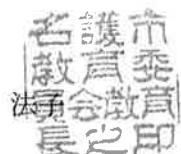 名護市
教育委
員会教育
長之印
法子